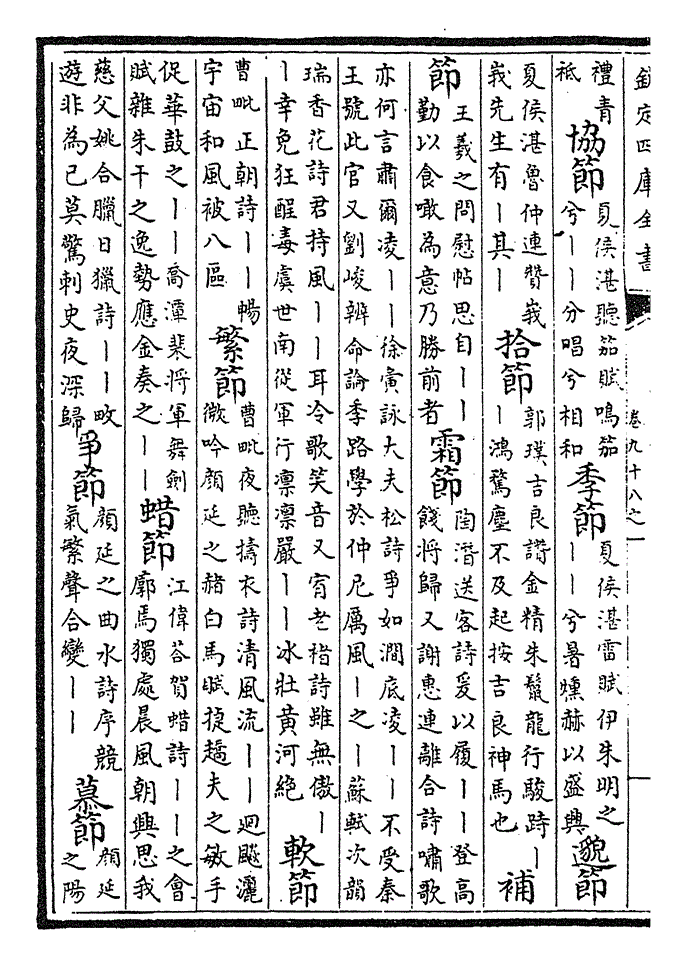 欽定四庫全書
卷九十八之一
禮青
袛
協節
夏侯湛聽笳賦鳴笳
兮丨丨分唱兮相和
季節
夏侯湛雷賦伊朱明之
丨丨兮暑燻赫以盛興
邈節
夏侯湛魯仲連贊峩
峩先生有丨其丨
拾節
郭璞吉良讚金精朱鬣龍行駿跱丨
丨鴻驚塵不及起按吉良神馬也
補
節
王羲之問慰帖思自丨丨
勤以食噉為意乃勝前者
霜節
陶潛送客詩爰以履丨丨登高
餞將歸又謝惠連離合詩嘯歌
亦何言肅爾凌丨丨徐寅詠大夫松詩爭如澗底凌丨丨不受秦
王號此官又劉峻辨命論季路學於仲尼厲風丨之丨蘇軾次韻
瑞香花詩君持風丨丨耳冷歌笑音又宥老楮詩雖無傲丨
丨幸免狂酲毒虞世南從軍行凛凛嚴丨丨冰壯黃河絕
軟節
曹毗正朝詩丨丨暢
宇宙和風被八區
繁節
曹毗夜聽擣衣詩清風流丨丨迴飈灑
微吟顔延之赭白馬賦捷趫夫之敏手
促華鼓之丨丨喬潭裴將軍舞劍
賦雜朱干之逸勢應金奏之丨丨
蜡節
江偉答賀蜡詩丨丨之會
廓焉獨處晨風朝興思我
慈父姚合臘日獵詩丨丨畋
遊非為已莫驚刺史夜深歸
爭節
顔延之曲水詩序競
氣繁聲合變丨丨
慕節
顔延
之陽